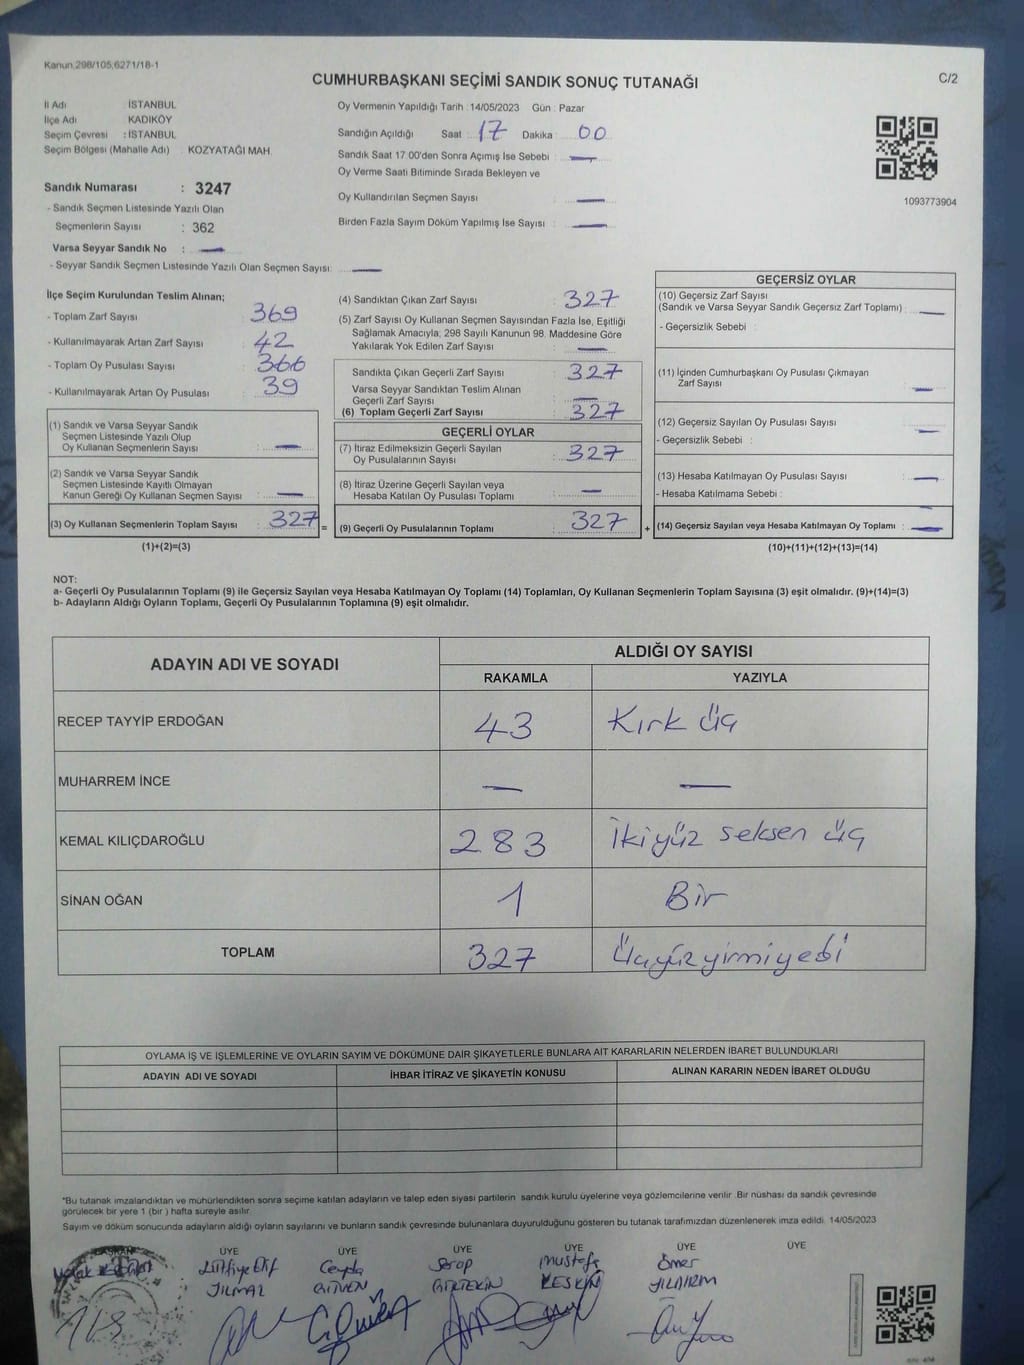 Kanun,298/105,6271/18-1
CUMHURBAŞKANI SEÇİMİ SANDIK SONUÇ TUTANAĞI
C/2
İl Adı İSTANBUL
İlçe Adı KADIKÖY
Seçim Çevresi : İSTANBUL
Seçim Bölgesi (Mahalle Adı) : KOZYATAĞI MAH.
Sandık Numarası : 3247
- Sandık Seçmen Listesinde Yazılı Olan
Seçmenlerin Sayısı : 362
Varsa Seyyar Sandık No : —
- Seyyar Sandık Seçmen Listesinde Yazılı Olan Seçmen Sayısı: —
Oy Vermenin Yapıldığı Tarih : 14/05/2023 Gün : Pazar
Sandığın Açıldığı Saat : 17 Dakika : 00
Sandık Saat 17 00'den Sonra Açımış İse Sebebi : —
Oy Verme Saati Bitiminde Sırada Bekleyen ve
Oy Kullandırılan Seçmen Sayısı : —
Birden Fazla Sayım Döküm Yapılmış İse Sayısı : —
1093773904
İlçe Seçim Kurulundan Teslim Alınan;
- Toplam Zarf Sayısı : 369
- Kullanılmayarak Artan Zarf Sayısı : 42
- Toplam Oy Pusulası Sayısı : 366
- Kullanılmayarak Artan Oy Pusulası : 39
(1) Sandık ve Varsa Seyyar Sandık
Seçmen Listesinde Yazılı Olup
Oy Kullanan Seçmenlerin Sayısı : —
(2) Sandık ve Varsa Seyyar Sandık
Seçmen Listesinde Kayıtlı Olmayan
Kanun Gereği Oy Kullanan Seçmen Sayısı : —
(3) Oy Kullanan Seçmenlerin Toplam Sayısı : 327 =
(1)+(2)=(3)
(4) Sandıktan Çıkan Zarf Sayısı : 327
(5) Zarf Sayısı Oy Kullanan Seçmen Sayısından Fazla İse, Eşitliği
Sağlamak Amacıyla, 298 Sayılı Kanunun 98. Maddesine Göre
Yakılarak Yok Edilen Zarf Sayısı : —
Sandıkta Çıkan Geçerli Zarf Sayısı : 327
Varsa Seyyar Sandıktan Teslim Alınan
Geçerli Zarf Sayısı : —
(6) Toplam Geçerli Zarf Sayısı : 327
GEÇERLİ OYLAR
(7) İtiraz Edilmeksizin Geçerli Sayılan
Oy Pusulalarının Sayısı : 327
(8) İtiraz Üzerine Geçerli Sayılan veya
Hesaba Katılan Oy Pusulası Toplamı : —
(9) Geçerli Oy Pusulalarının Toplamı : 327 +
GEÇERSİZ OYLAR
(10) Geçersiz Zarf Sayısı
(Sandık ve Varsa Seyyar Sandık Geçersiz Zarf Toplamı) : —
- Geçersizlik Sebebi :
(11) İçinden Cumhurbaşkanı Oy Pusulası Çıkmayan
Zarf Sayısı : —
(12) Geçersiz Sayılan Oy Pusulası Sayısı : —
- Geçersizlik Sebebi :
(13) Hesaba Katılmayan Oy Pusulası Sayısı : —
- Hesaba Katılmama Sebebi :
(14) Geçersiz Sayılan veya Hesaba Katılmayan Oy Toplamı : —
(10)+(11)+(12)+(13)=(14)
NOT:
a- Geçerli Oy Pusulalarının Toplamı (9) ile Geçersiz Sayılan veya Hesaba Katılmayan Oy Toplamı (14) Toplamları, Oy Kullanan Seçmenlerin Toplam Sayısına (3) eşit olmalıdır. (9)+(14)=(3)
b- Adayların Aldığı Oyların Toplamı, Geçerli Oy Pusulalarının Toplamına (9) eşit olmalıdır.
ADAYIN ADI VE SOYADI ALDIĞI OY SAYISI
RAKAMLA YAZIYLA
RECEP TAYYİP ERDOĞAN 43 Kırk üç
MUHARREM İNCE — —
KEMAL KILIÇDAROĞLU 283 İkiyüz seksen üç
SİNAN OĞAN 1 Bir
TOPLAM 327 Üçyüzyirmiyedi
OYLAMA İŞ VE İŞLEMLERİNE VE OYLARIN SAYIM VE DÖKÜMÜNE DAİR ŞİKAYETLERLE BUNLARA AİT KARARLARIN NELERDEN İBARET BULUNDUKLARI
ADAYIN ADI VE SOYADI İHBAR İTİRAZ VE ŞİKAYETİN KONUSU ALINAN KARARIN NEDEN İBARET OLDUĞU
*Bu tutanak imzalandıktan ve mühürlendikten sonra seçime katılan adayların ve talep eden siyasi partilerin sandık kurulu üyelerine veya gözlemcilerine verilir. Bir nüshası da sandık çevresinde
görülecek bir yere 1 (bir ) hafta süreyle asılır.
Sayım ve döküm sonucunda adayların aldığı oyların sayılarını ve bunların sandık çevresinde bulunanlara duyurulduğunu gösteren bu tutanak tarafımızdan düzenlenerek imza edildi. 14/05/2023
BAŞKAN ÜYE ÜYE ÜYE ÜYE ÜYE ÜYE
Lütfiye Elif Ceyda Serap Mustafa Ömer
YILMAZ GÜVEN GÜLTEKİN KESKİN YILDIRIM